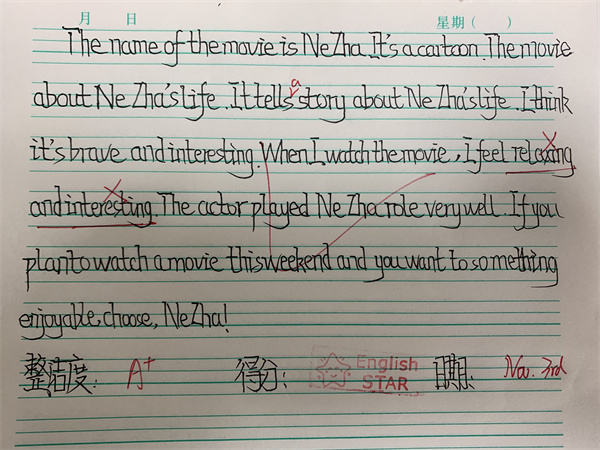 月 日 星期( )
The name of the movie is Ne Zha. It's a cartoon. The movie
about Ne Zha's life. It tells a story about Ne Zha's life. I think
it's brave and interesting. When I watch the movie, I feel relaxing
and interesting. The actor played Ne Zha role very well. If you
plan to watch a movie this weekend and you want to something
enjoyable, choose, Ne Zha!
整洁度: A+ 得分: English STAR 日期: Nov. 3rd